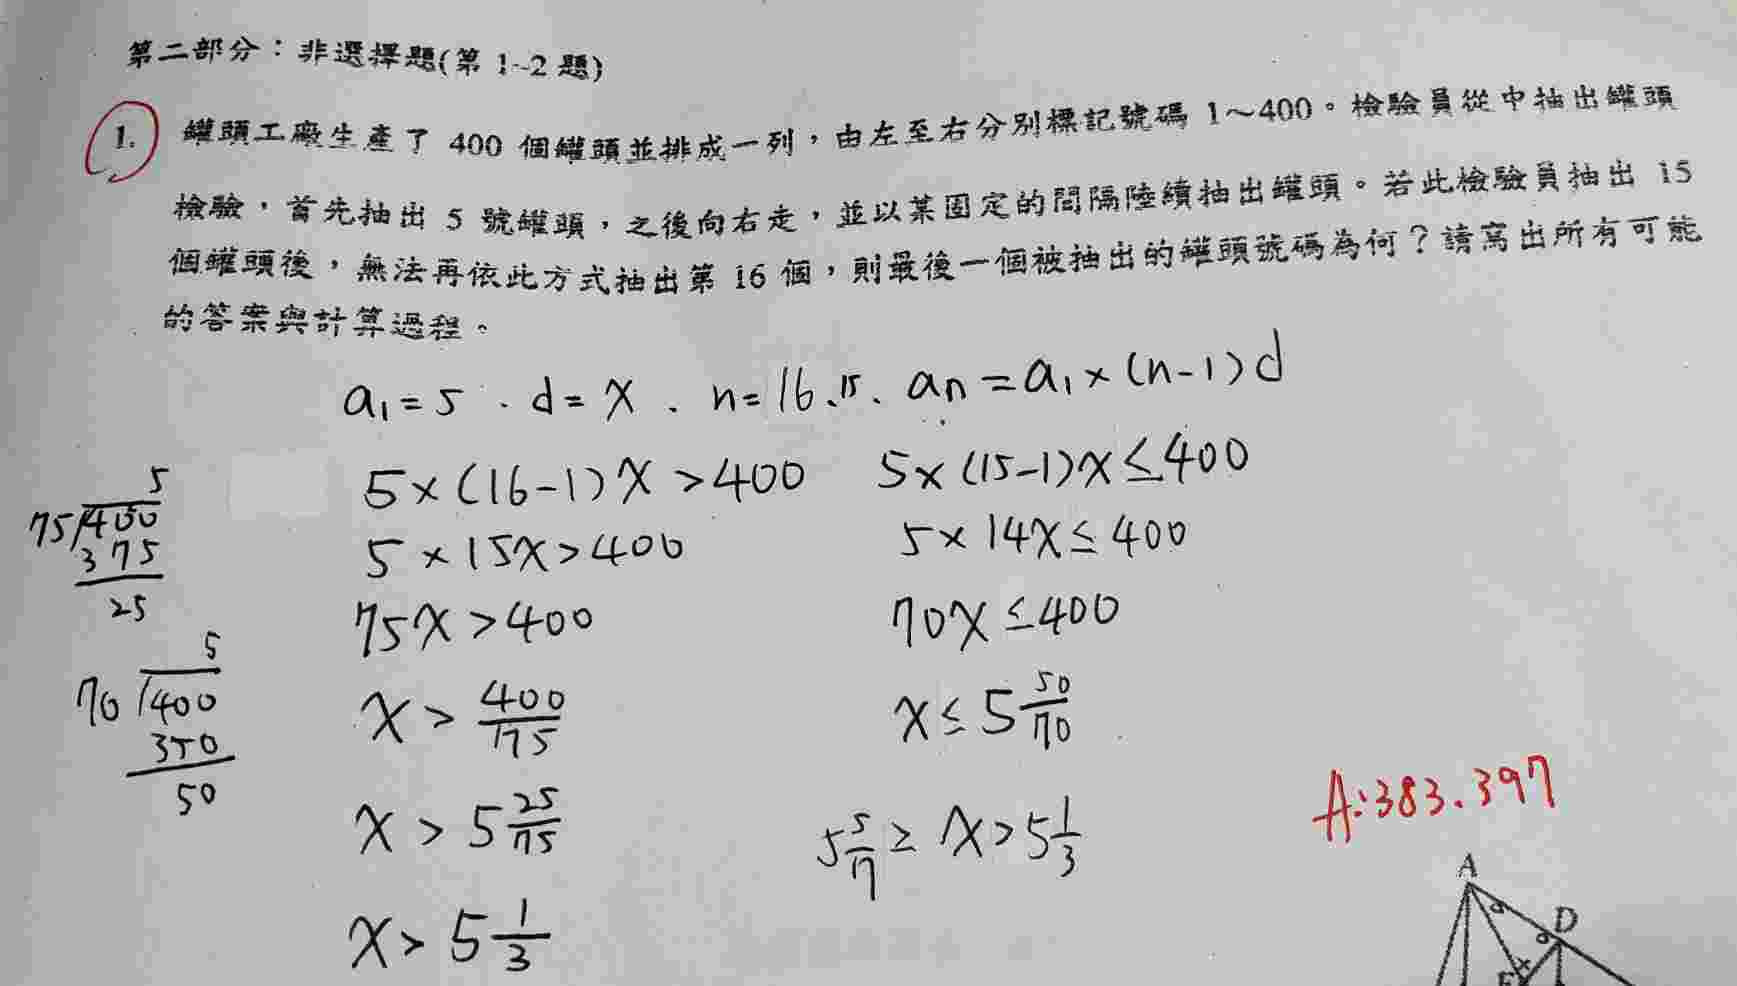 第二部分：非選擇題(第 1~2 題)
1. 罐頭工廠生產了 400 個罐頭並排成一列，由左至右分別標記號碼 1～400。檢驗員從中抽出罐頭
檢驗，首先抽出 5 號罐頭，之後向右走，並以某固定的間隔陸續抽出罐頭。若此檢驗員抽出 15
個罐頭後，無法再依此方式抽出第 16 個，則最後一個被抽出的罐頭號碼為何？請寫出所有可能
的答案與計算過程。
a₁=5 . d=x . n=16.15. an=a₁×(n-1)d
5×(16-1)x>400
5×15x>400
75x>400
x>400/75
x>5 25/75
x>5 1/3
5×(15-1)x≤400
5×14x≤400
70x≤400
x≤5 50/70
5 5/7≥x>5 1/3
5
75/400
375
25
5
70/400
350
50
A:383.397
A
D
E